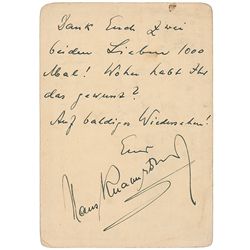 Dank Euch Zwei
beiden Lieben 1000
Mal! Woher habt Ihr
das gewusst?
Auf baldiges Wiedersehen!
Euer
Hans